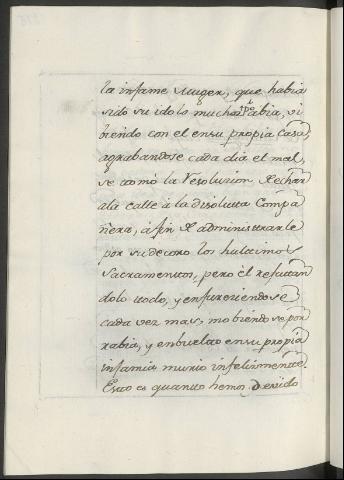 la infame Muger, que habia
sido su idolo mucho tpo. abia, vi
biendo con el en su propia Casa,
agrabandose cada dia el mal,
se tomò la Resoluzion, d echar
ala calle à la disoluta Compa
ñera, àfin d administrarle
por su decoro los hultimos
Sacramentos, pero èl refuttan
dolo todo, y enfureziendose
cada vez mas, mobiendose por
rabia, y enbuelto en su propia
infamia murio infelizmente.
Esto es quanto hemos devido